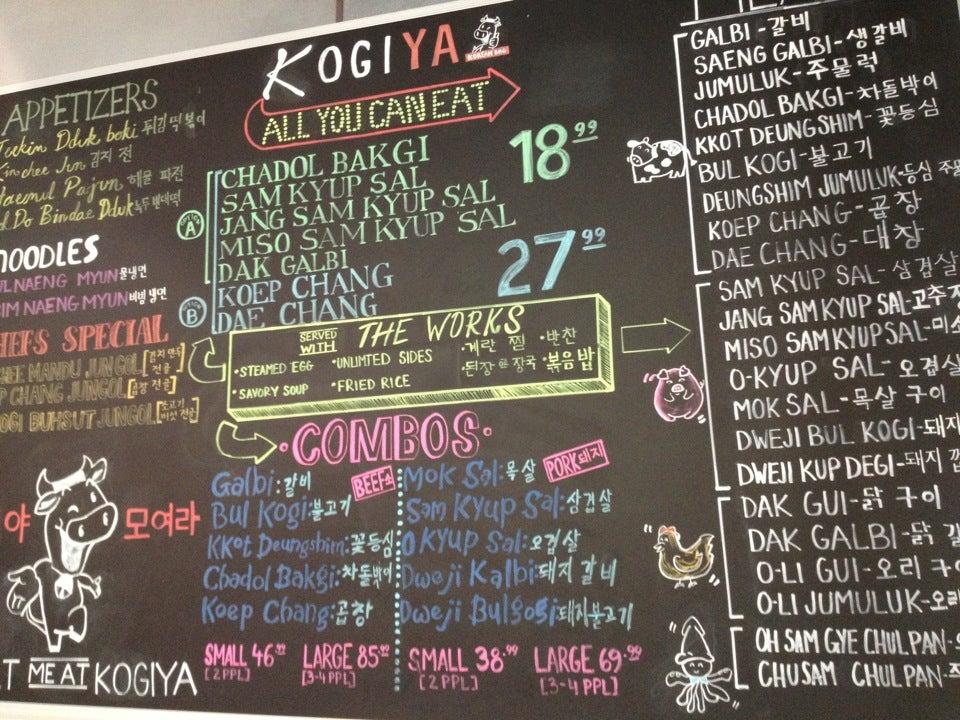 APPETIZERS
Dduk boki 튀김 떡볶이
Kimchee Jun 김치 전
Haemul Pajun 해물 파전
Do Bindae Dduk 녹두 빈대떡
NOODLES
MUL NAENG MYUN 물냉면
BIM NAENG MYUN 비빔냉면
CHEFS SPECIAL
CHEE MANDU JUNGOL [김치 만두 전골]
CHANG JUNGOL [곱창 전골]
OGI BUHSUT JUNGOL [소고기 버섯 전골]
야 모여라
ME AT KOGIYA
KOGIYA
KOREAN BBQ
ALL YOU CAN EAT
OPTION A
CHADOL BAKGI
SAM KYUP SAL
JANG SAM KYUP SAL
MISO SAM KYUP SAL
DAK GALBI
18 99
OPTION B
KOEP CHANG
DAE CHANG
27 99
SERVED WITH THE WORKS
• STEAMED EGG • UNLIMTED SIDES
• SAVORY SOUP • FRIED RICE
• 계란 찜 • 반찬
• 된장 장국 • 볶음밥
• COMBOS •
BEEF 소
Galbi: 갈비
Bul Kogi: 불고기
KKot Deungshim: 꽃등심
Chadol Bakgi: 차돌박이
Koep Chang: 곱창
SMALL 46.99 [2 PPL]
LARGE 85.99 [3-4 PPL]
PORK 돼지
Mok Sal: 목살
Sam Kyup Sal: 삼겹살
O Kyup Sal: 오겹살
Dweji Kalbi: 돼지 갈비
Dweji Bulgogi: 돼지불고기
SMALL 38.99 [2 PPL]
LARGE 69.99 [3-4 PPL]
GALBI - 갈비
SAENG GALBI - 생갈비
JUMULUK - 주물럭
CHADOL BAKGI - 차돌박이
KKOT DEUNGSHIM - 꽃등심
BUL KOGI - 불고기
DEUNGSHIM JUMULUK - 등심 주물
KOEP CHANG - 곱창
DAE CHANG - 대창
SAM KYUP SAL - 삼겹살
JANG SAM KYUP SAL - 고추
MISO SAM KYUP SAL - 미소
O-KYUP SAL - 오겹살
MOK SAL - 목살 구이
DWEJI BUL KOGI - 돼지
DWEJI KUP DEGI - 돼지 껍
DAK GUI - 닭 구이
DAK GALBI - 닭 갈
O-LI GUI - 오리 구이
O-LI JUMULUK - 오리
OH SAM GYE CHUL PAN - 오
CHUSAM CHUL PAN - 주